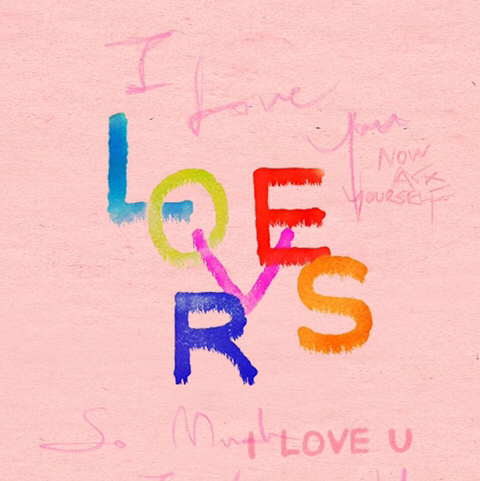 I
Love
You
NOW
ASK
YOURSELF
LOVE
RS
So Much
I LOVE U